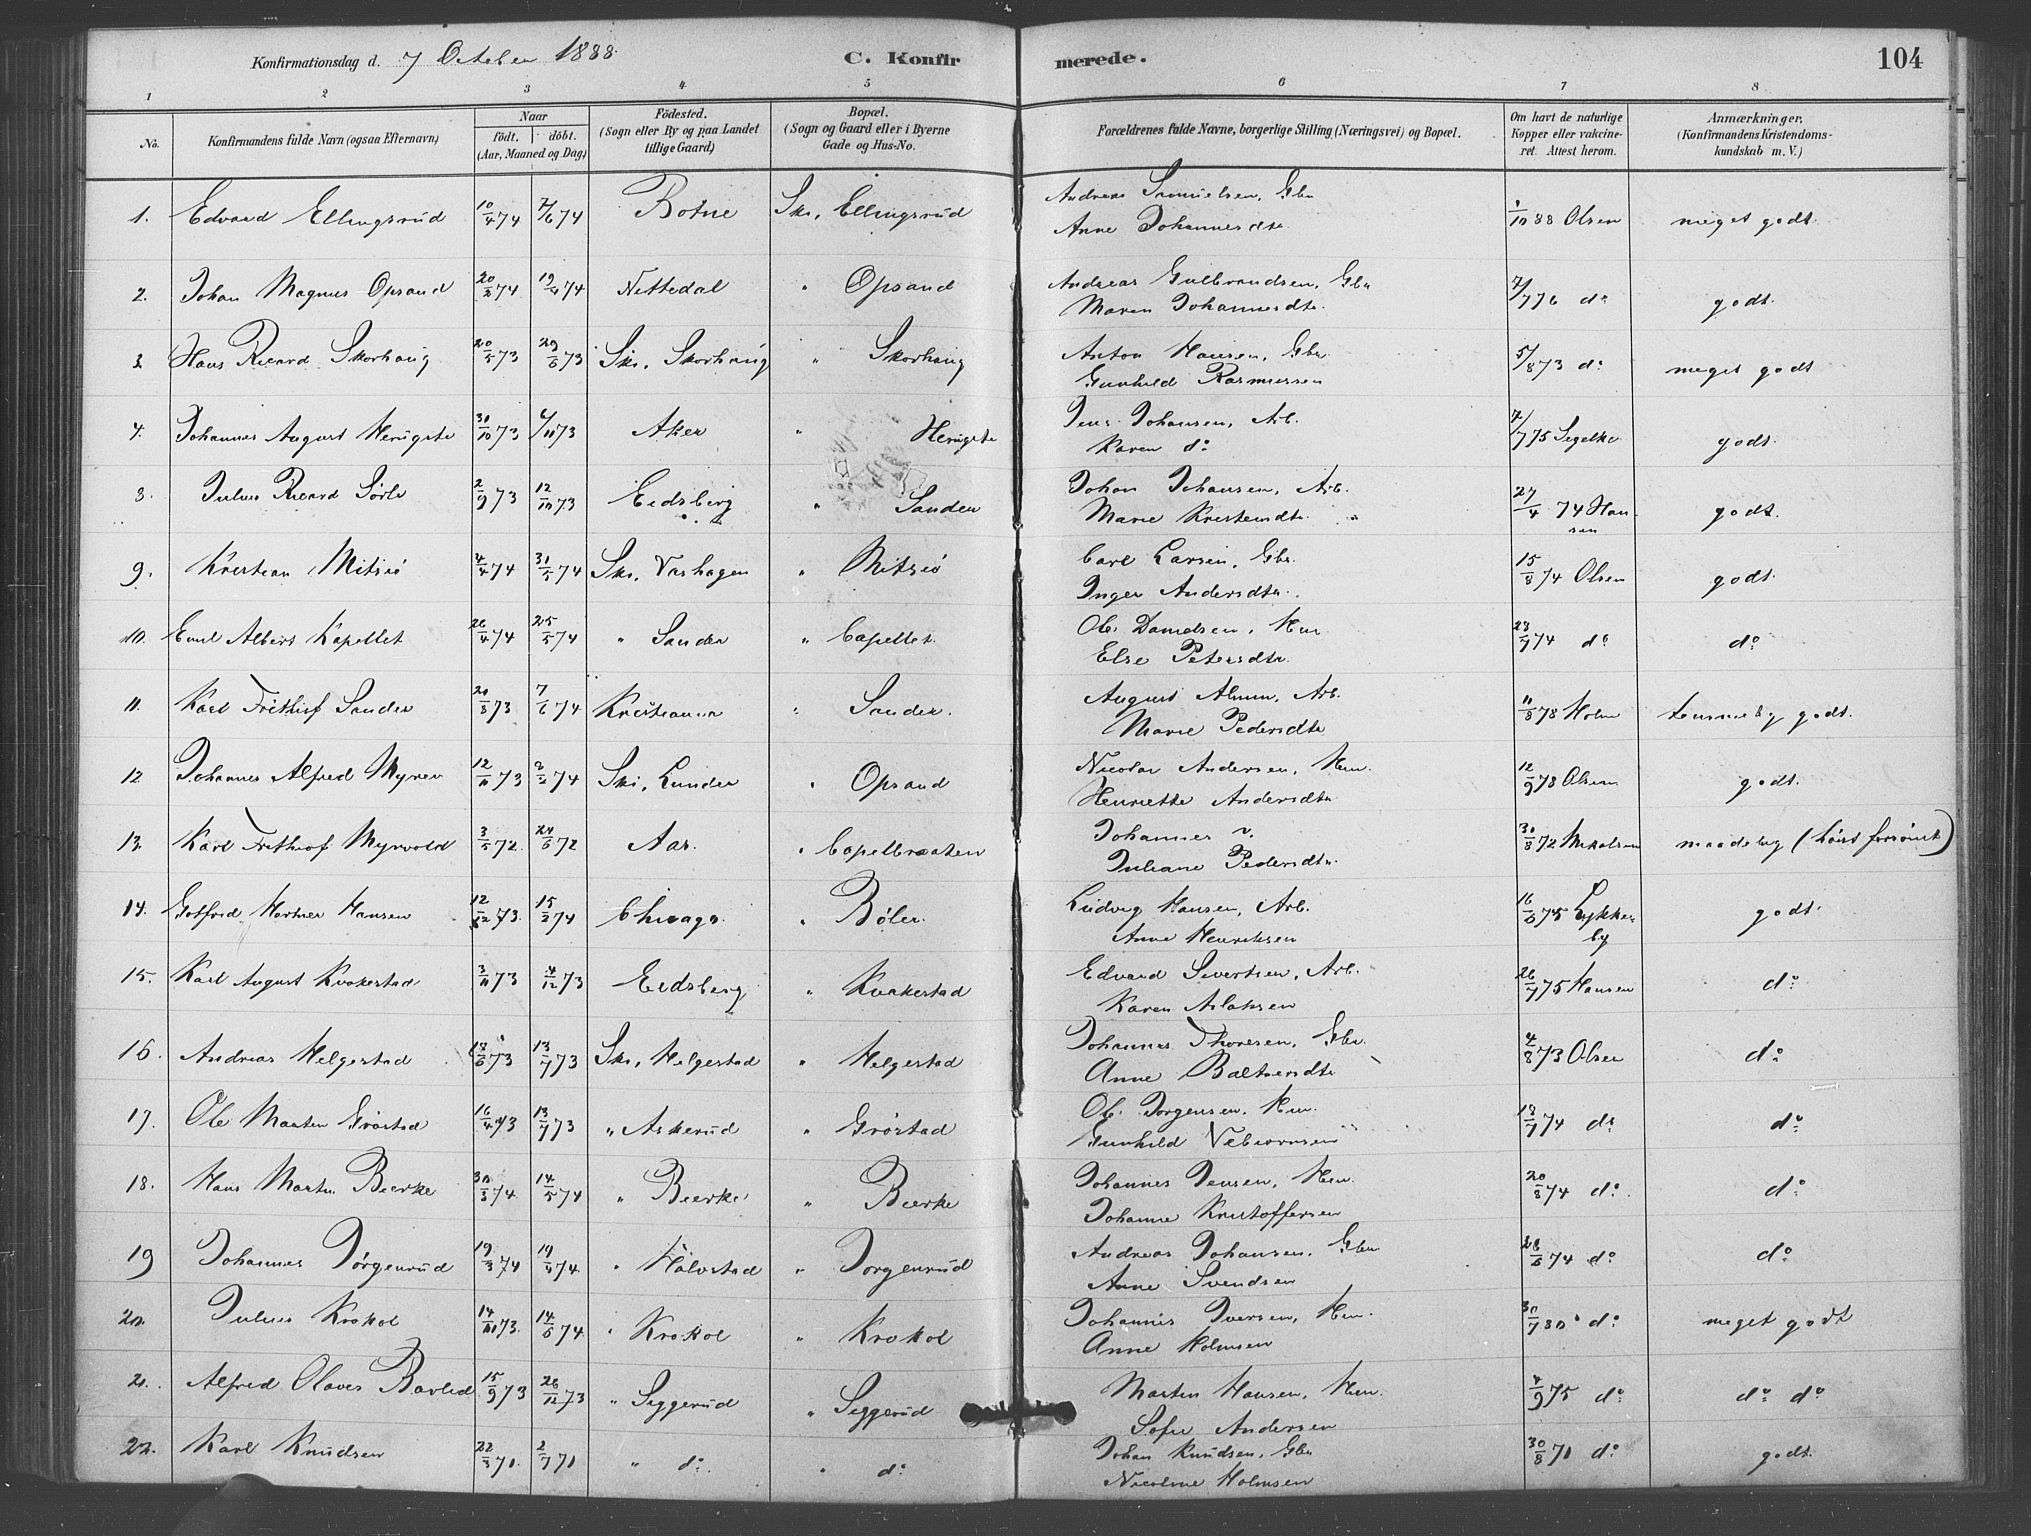 Konfirmationsdag d. 7 October 1888. C. Konfirmerede. 104
1 2 3 4 5 6 7 8
No. Konfirmandens fulde Navn (ogsaa Efternavn) Naar födt. döbt. (Aar, Maaned og Dag) Födested. (Sogn eller By og paa Landet tillige Gaard) Bopæl. (Sogn og Gaard eller i Byerne Gade og Hus-No. Forældrenes fulde Navne, borgerlige Stilling (Næringsvei) og Bopæl. Om havt de naturlige Kopper eller vakcineret. Attest herom. Anmærkninger. (Konfirmandens Kristendomskundskab m. V.)
1. Edvard Ellingsrud 10/4 74 7/6 74 Botne Ski, Ellingsrud Andreas Samuelsen, Gbr 88 Olsen meget godt.
Anne Johannesdtr
2. Johan Magnus Opsand 20/2 74 19/4 74 Nittedal " Opsand Andreas Gulbrandsen, Gbr 7/7 76 do godt.
Maren Johannesdtr.
3 Hans Ricard Skorhaug 20/5 73 29/6 73 Ski, Skorhaug " Skorhaug Anton Hansen, Gbr 5/8 73 do meget godt
Gunhild Rasmussen
4. Johannes August 31/10 73 /11 73 Aker " Jens Johansen, Arb. 7/7 75 Segelke godt.
Karen do
8. Julius Ricard Sörli 2/9 73 12/10 73 Eidsberg " Sander Johan Johansen, Arb. 27/4 74 Hansen godt.
Marie Kristendtr "
9. Kristian Mitsjö 4/4 74 31/5 74 Ski, Vashagen " Mitsjö Carl Larsen, Gbr. 15/8 74 Olsen godt.
Inger Andersdtr.
10. Emil Albert Kapellet 26/4 74 25/5 74 " Sander " Capellet. Ole Danielsen, Hm. 23/7 74 do do
Else Petersdtr.
11. Karl Frithiof Sander 20/8 73 7/6 74 Kristiania " Sander. August Arb. 11/8 78 Holm godt.
Marie Pedersdtr
12 Johannes Alfred Myrer 12/11 73 2/2 74 Ski, Lunder " Opsand Nicolai Andersen, Hm. 12/9 78 Olsen godt.
Henriette Andersdtr
13. Karl Frithiof Myrvold 3/5 72. 24/6 72 Aas. " Capelbraaten Johannes 30/8 72 Nikolsen maadelig (höist forsömt)
Juliane Pedersdtr.
14. Gotfred Hartner Hansen 12/12 73. 15/2 74 Chicago. " Böler. Ludvig Hansen, Arb. 16/6 75 Lykkeby godt.
Anne Henriksen
15. Karl August Kvakestad 3/11 73 4/12 73 Eidsberg " Kvakestad Edvard Sivertsen, Arb. 26/7 75 Hansen do
Karen Aslaksen
16. Andreas Helgestad 18/6 73 13/7 73 Ski, Helgestad " Helgestad Johannes Thoresen, Gbr. 4/8 73 Olsen do
Anne Baltsersdtr
17. Ole Martin Gröstad 16/4 73 13/7 73 " Askerud " Gröstad Ole Jorgensen, Hm. 18/7 74 do do
Gunhild Vebiornsen
18. Hans Martin Bierke 30/3 74. 14/5 74 " Bierke " Bierke Johannes Jensen, Hm. 20/8 74 do. do
Johanne Kristoffersen
19 Johannes Jörgenrud 19/3 74 19/4 74 " Halvstad " Jorgenrud Andreas Johansen, Gbr 28/6 74 do do
Anne Svendsen
20. Julius Krokol 14/11 73. 14/6 74 " Krokol " Krokol Johannes Iversen, Hm. 30/7 80 do. meget godt
Anne Holmsen
21. Alfred Olaves 15/9 73 26/12 73 " Siggerud " Siggerud Martin Hansen, Hm. 4/9 75 do do do
Sofie Andersen
22. Karl Knudsen 22/3 71. 2/7 71 " do. " do Johan Knudsen, Gbr 30/8 71 do godt.
Nicoline Holmsen